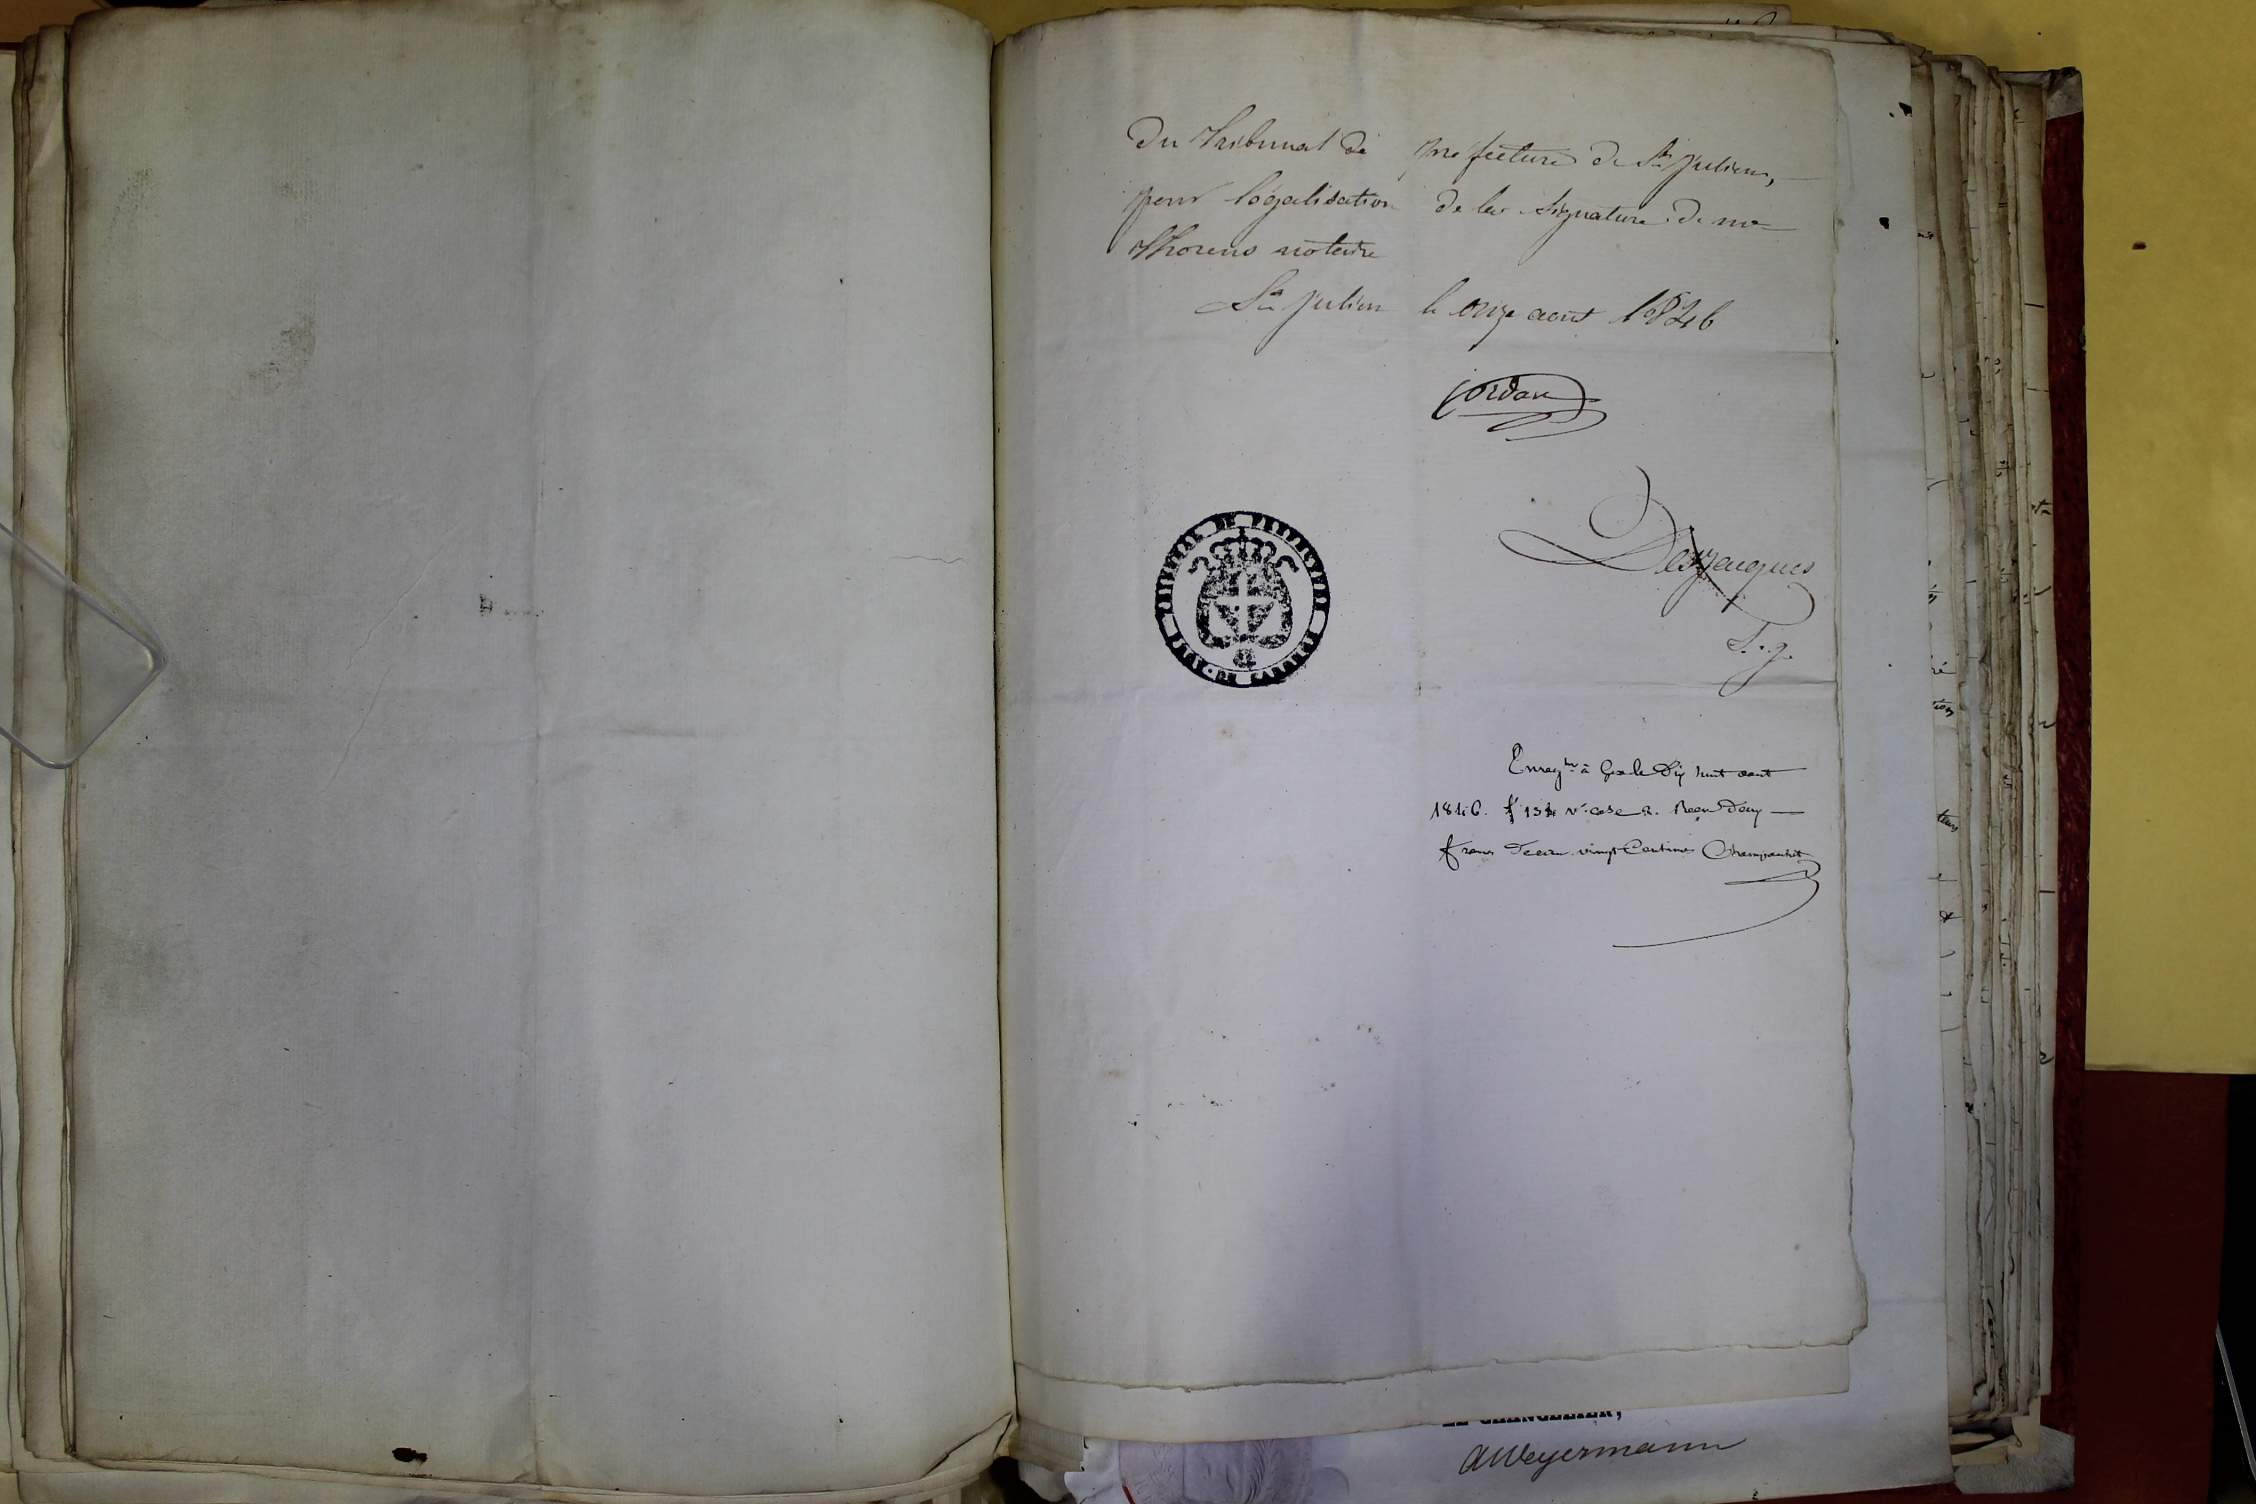 Du Tribunal de préfecture de St Julien,
pour légalisation de la signature de me
Thorens notaire
St Julien le onze aout 1846
Jordan
Desjacques
S. g.
Enregtré à Gex le Dix huit aout
1846. f° 134 v° case 2. Reçu Deux
francs Decime vingt Centimes
TRIBUNAL DE
LE CHANCELIER,
AWeyermann